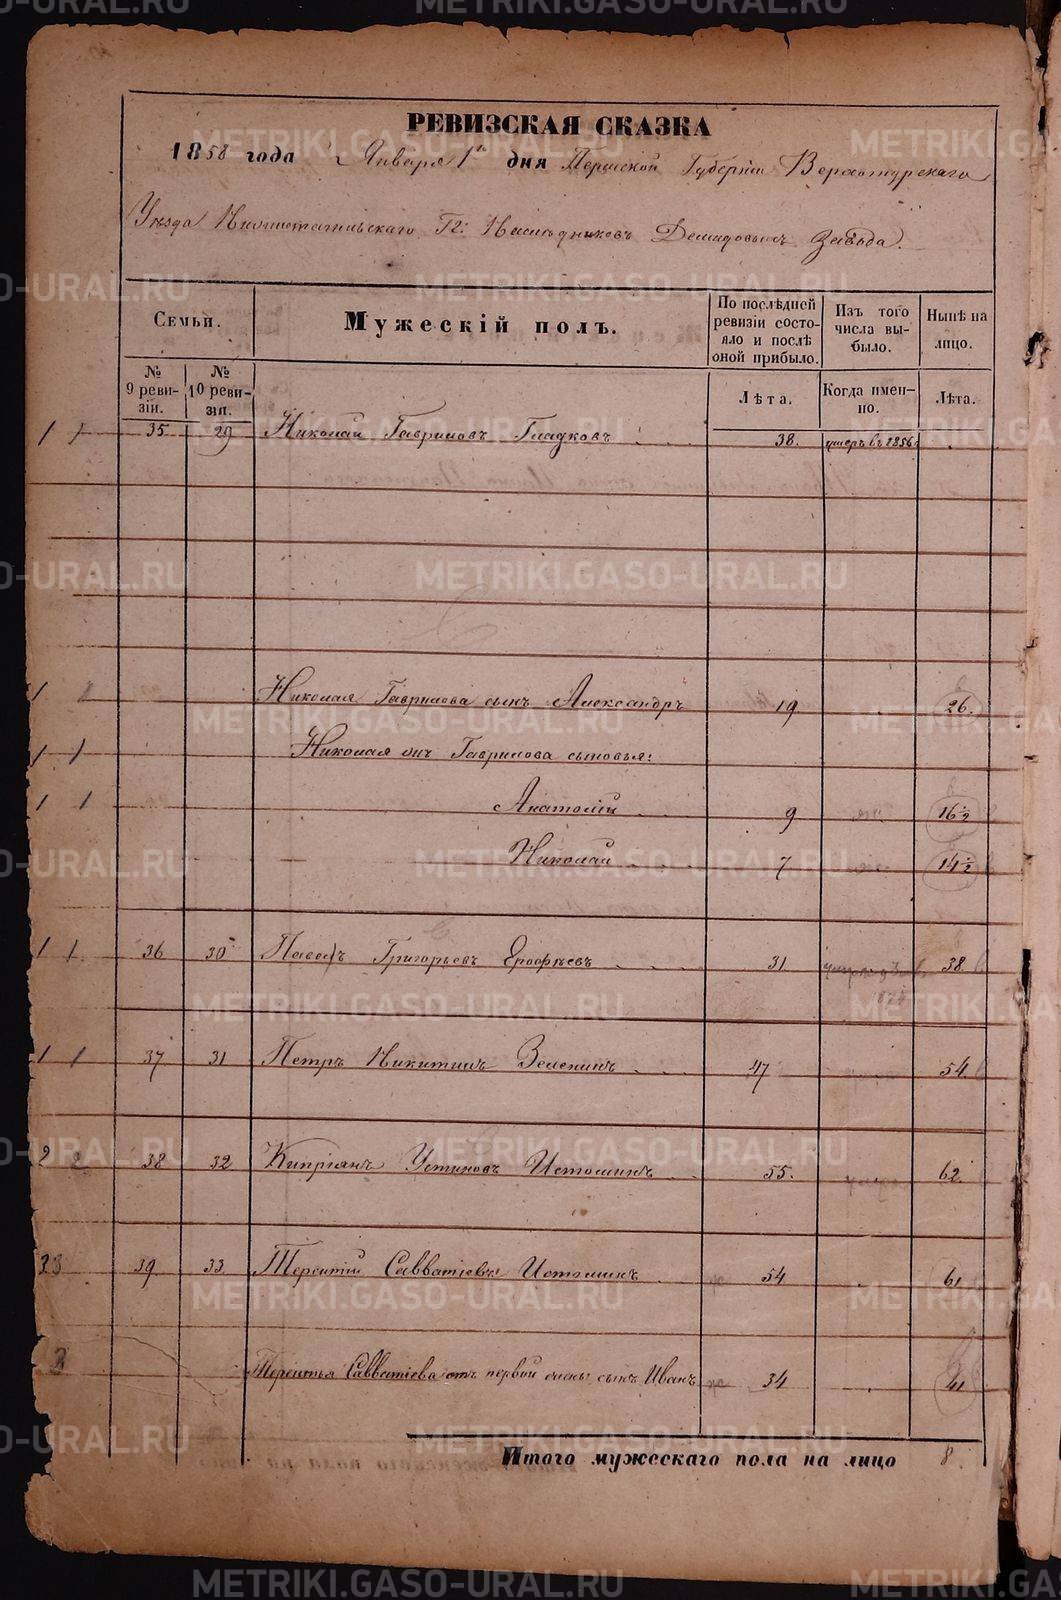 РЕВИЗСКАЯ СКАЗКА
1858 года Января 1 дня Пермской Губерніи Верхотурскаго
Уѣзда Нижнетагильскаго Гг: Наслѣдниковъ Демидовыхъ завода.
Семьи.
Мужескій полъ.
По послѣдней ревизіи состояло и послѣ оной прибыло.
Изъ того числа выбыло.
Нынѣ на лицо.
№ 9 ревизіи.
№ 10 ревизіи.
Лѣта.
Когда именно.
Лѣта.
1 1 35 29 Николай Гавриловъ Гладковъ 38. умеръ въ 1856
1 Николая Гаврилова сынъ Александръ 19 26.
1 1 Николая Гаврилова сыновья:
1 1 Анатолій 9 16½
Николай 7 14½
1 1 36 30 Павелъ Григорьевъ Ерофѣевъ 31 38
1 1 37 31 Петръ Никитинъ Зеленинъ 47 54
2 2 38 32 Кипріянъ Устиновъ Истоминъ 55. 62.
33 39 33 Терентій Савватіевъ Истоминъ 54 61
3 Терентья Савватіева отъ первой жены сынъ Иванъ 34 41
Итого мужескаго пола на лицо 8
METRIKI.GASO-URAL.RU